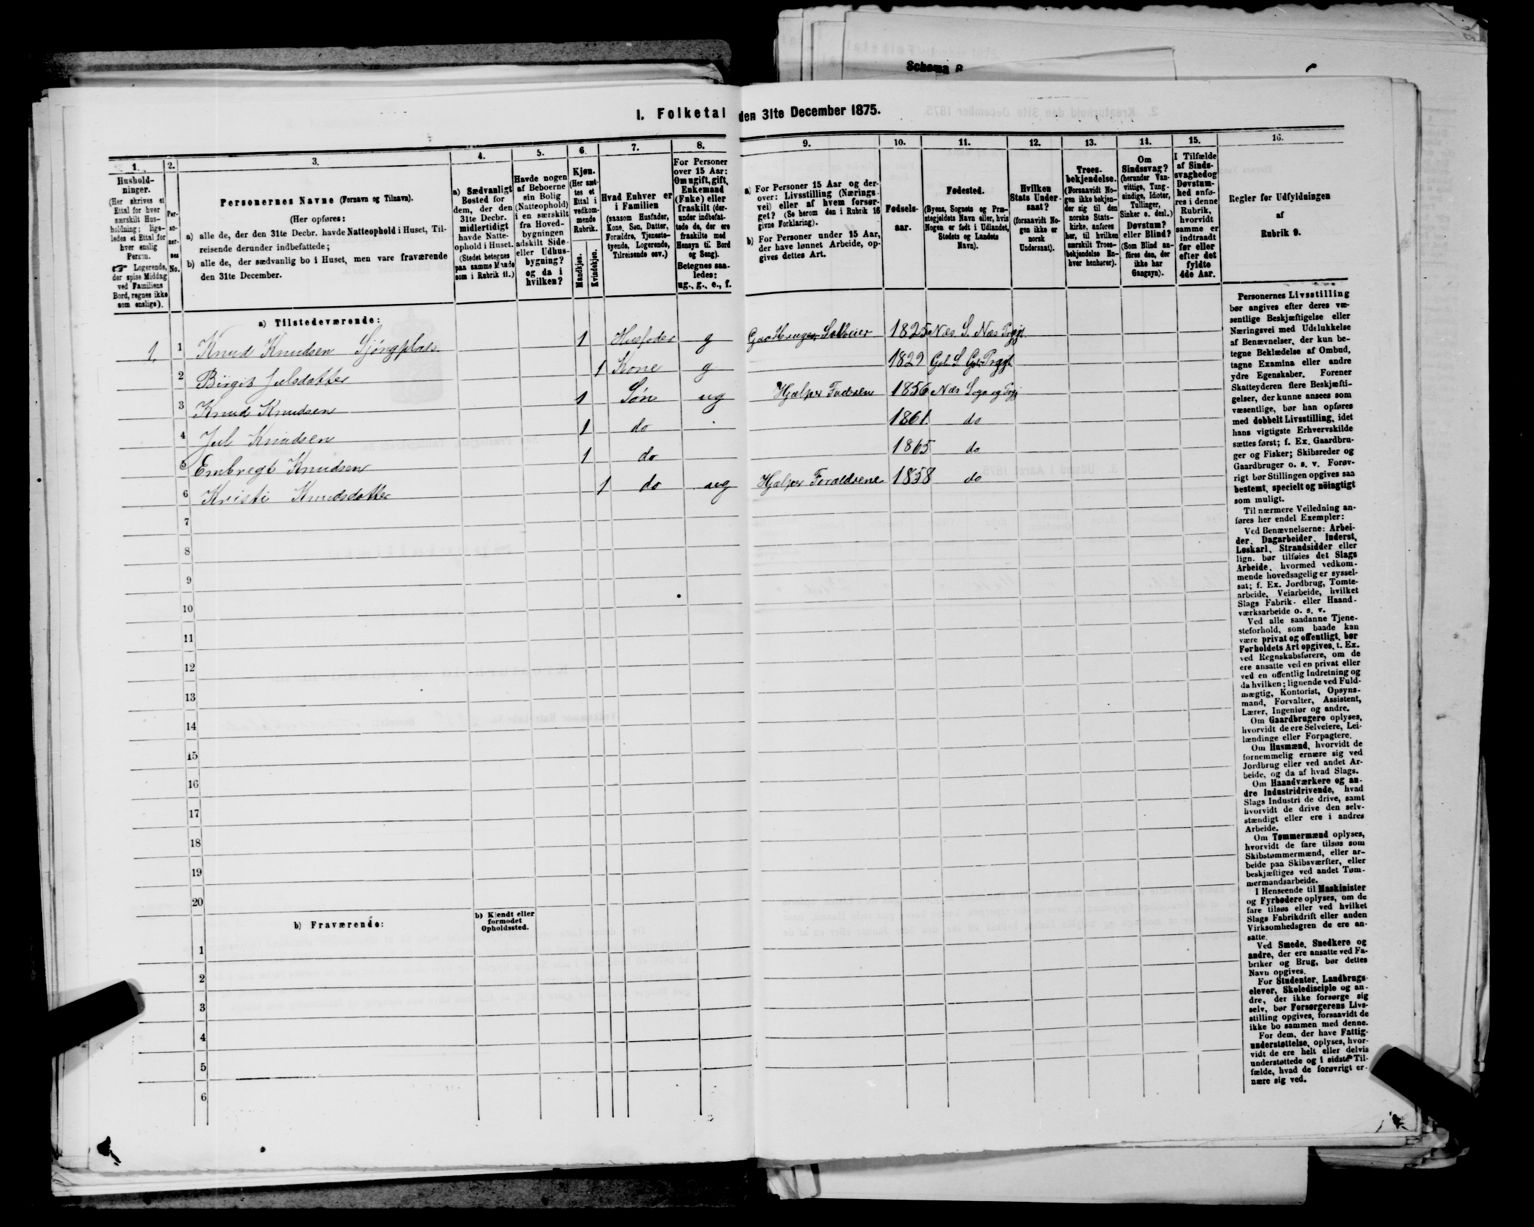 Schema B
1. Folketal den 31te December 1875.
1. 2. 3. 4. 5. 6. 7. 8. 9. 10. 11. 12. 13. 14. 15. 16.
Hushold-
ninger.
(Her skrives et
Ettal for hver
særskilt Hus-
holdning; lige-
ledes et Ettal for
enslig
Person.
☞ Logerende,
der spise Middag
ved Familiens
Bord, regnes ikke
som enslige).
Per-
so-
ner-
nes
No.
Personernes Navne (Fornavn og Tilnavn).
(Her opføres:
a) alle de, der den 31te Decbr. havde Natteophold i Huset, Til-
reisende derunder indbefattede;
b) alle de, der sædvanlig bo i Huset, men vare fraværende
den 31te December.
a) Sædvanligt
Bosted for
dem, der den
31te Decbr.
midlertidigt
havde Natte-
ophold i Huset.
(Stedet betegnes
paa samme Maade
som i Rubrik 11.)
Havde nogen
af Beboerne
sin Bolig
(Natteophold)
i en særskilt
fra Hoved-
bygningen
adskilt Side-
eller Udhus-
bygning?
og da i
hvilken?
Kjøn.
(Her sæt-
tes et
Ettal i
vedkom-
mende
Rubrik.
Mandkjøn.
Kvindekjøn.
Hvad Enhver er
i Familien
(saasom Husfader,
Kone, Søn, Datter,
Forældre, Tjeneste-
tyende, Logerende,
Tilreisende osv.)
For Personer
over 15 Aar:
Om ugift, gift,
Enkemand
(Enke) eller
fraskilt (der-
under indbefat-
tede de, der ere
fraskilte med
Hensyn til Bord
og Seng).
Betegnes saa-
ledes:
ug., g., e., f.
a) For Personer 15 Aar og der-
over: Livsstilling (Nærings-
vei) eller af hvem forsør-
get? (Se herom den i Rubrik 16
givne Forklaring).
b) For Personer under 15 Aar,
der have lønnet Arbeide, op-
gives dettes Art.
Fødsels-
aar.
Fødested.
(Byens, Sognets og Præ-
stegjeldets Navn eller, hvis
Nogen er født i Udlandet,
Stedets og Landets
Navn).
Hvilken
Stats Under-
saat?
(forsaavidt No-
gen ikke er
norsk
Undersaat).
Troes-
bekjendelse.
(Forsaavidt No-
gen ikke bekjen-
der sig til den
norske Stats-
kirke, anføres
her, til hvilken
særskilt Troes-
bekjendelse En-
hver henhører).
Om
Sindssvag?
(herunder Van-
vittige, Tung-
sindige, Idioter,
Tullinger,
Sinker o. desl.)
Døvstum?
eller Blind?
(Som Blind an-
føres den, der
ikke har
Gangsyn).
I Tilfælde
af Sinds-
svaghed og
Døvstum-
hed anfø-
res i denne
Rubrik,
hvorvidt
samme er
indtraadt
før eller
efter det
fyldte
4de Aar.
Regler for Udfyldningen
af
Rubrik 9.
a) Tilstedeværende:
1. 1 Knud Knudsen 1 Husfader g 1825 Næs S. Næs Prgjl.
2 Birgit Julsdatter 1 Kone g 1829
3 Knud Knudsen 1 Søn ug Hjælper Faderen 1856
4 Jul Knudsen 1 do 1861 do
5 Embregt Knudsen 1 do 1865 do
6 Kristi Knudsdatter 1 do ug Hjælper Forældrene 1858 do
7
8
9
10
11
12
13
14
15
16
17
18
19
20
b) Fraværende:
b) Kjendt eller
formodet
Opholdssted.
1
2
3
4
5
6
Personernes Livsstilling
bør angives efter deres væ-
sentlige Beskjæftigelse eller
Næringsvei med Udelukkelse
af Benævnelser, der kun be-
tegne Beklædelse af Ombud,
tagne Examina eller andre
ydre Egenskaber. Forener
Skatteyderen flere Beskjæfti-
gelser, der kunne ansees som
væsentlige, bør han opføres
med dobbelt Livsstilling, idet
hans vigtigste Erhvervskilde
sættes først; f. Ex. Gaardbru-
ger og Fisker; Skibsreder og
Gaardbruger o. s. v. Forøv-
rigt bør Stillingen opgives saa
bestemt, specielt og nøiagtigt
som muligt.
Til nærmere Veiledning an-
føres her endel Exempler:
Ved Benævnelserne: Arbei-
der, Dagarbeider, Inderst,
Løskarl, Strandsidder eller
lign. bør tilføies det Slags
Arbeide, hvormed vedkom-
mende hovedsagelig er syssel-
sat; f. Ex. Jordbrug, Tomte-
arbeide, Veiarbeide, hvilket
Slags Fabrik- eller Haand-
værksarbeide o. s. v.
Ved alle saadanne Tjene-
steforhold, som baade kan
være privat og offentligt, bør
Forholdets Art opgives, t. Ex.
ved Regnskabsførere, om de
ere ansatte ved en privat eller
ved en offentlig Indretning og
da hvilken; lignende ved Fuld-
mægtig, Kontorist, Opsyns-
mand, Forvalter, Assistent,
Lærer, Ingeniør og andre.
Om Gaardbrugere oplyses,
hvorvidt de ere Selveiere, Lei-
lændinge eller Forpagtere.
Om Husmænd, hvorvidt de
fornemmelig ernære sig ved
Jordbrug eller ved andet Ar-
beide, og da af hvad Slags.
Om Haandværkere og an-
dre Industridrivende, hvad
Slags Industri de drive, samt
hvorvidt de drive den selv-
stændigt eller ere i andres
Arbeide.
Om Tømmermænd oplyses,
hvorvidt de fare tilsøs som
Skibstømmermænd, eller ar-
beide paa Skibsværfter, eller
beskjæftiges ved andet Tøm-
mermandsarbeide.
I Henseende til Maskinister
og Fyrbødere oplyses, om de
fare tilsøs eller ved hvilket
Slags Fabrikdrift eller anden
Virksomhedsgren de ere an-
satte.
Ved Smede, Snedkere og
andre, der ere ansatte ved Fa-
briker og Brug, bør dettes
Navn opgives.
For Studenter, Landbrugs-
elever, Skoledisciple og an-
dre, der ikke forsørge sig
selv, bør Forsørgerens Livs-
stilling opgives, forsaavidt de
ikke bo sammen med denne.
For dem, der have Fattig-
understøttelse, oplyses, hvor-
vidt de ere helt eller delvis
understøttede og i sidste Til-
fælde, hvad de forøvrigt er-
nære sig ved.